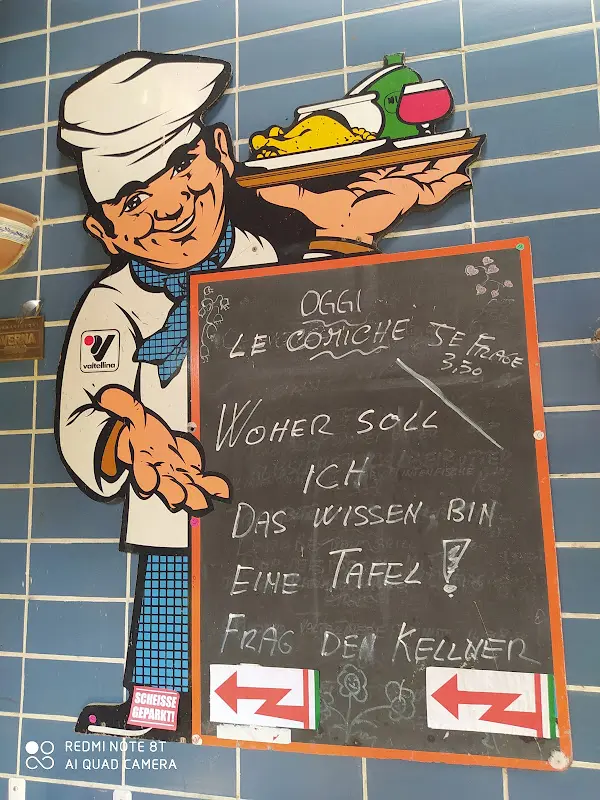 OGGI
LE COMICHE JE FRAGE
3,50
WOHER SOLL
ICH
DAS WISSEN BIN
EINE TAFEL!
FRAG DEN KELLNER
valtellina
VERNA
SCHEISSE
GEPARKT!
REDMI NOTE 8T
AI QUAD CAMERA